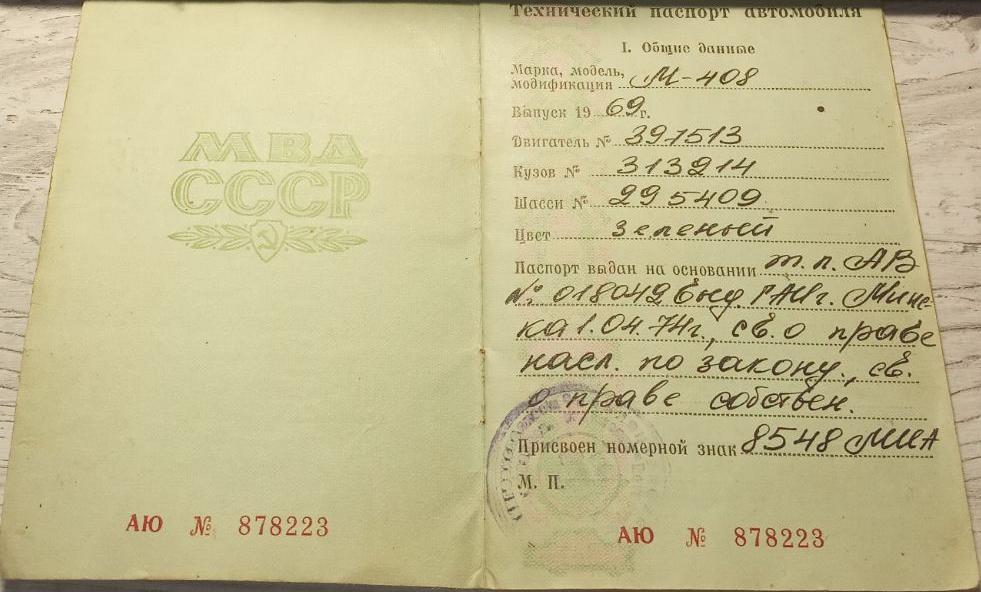 МВД
СССР
АЮ № 878223
Технический паспорт автомобиля
I. Общие данные
Марка, модель,
модификация М-408
Выпуск 19 69 г.
Двигатель № 391513
Кузов № 313214
Шасси № 295409
Цвет зеленый
Паспорт выдан на основании т.п. АВ
№ 018042 выд. ГАИ г. Минс-
ка 1.04.74г., св. о праве
насл. по закону., св.
о праве собствен.
Присвоен номерной знак 8548 МИА
М. П.
АЮ № 878223